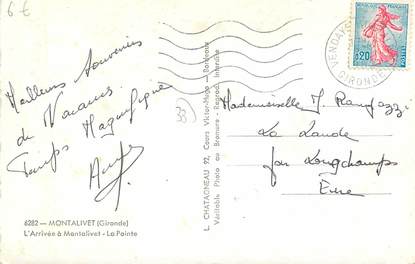 6€
Meilleurs Souvenirs
de Vacances
Temps Magnifique
33
6282 — MONTALIVET (Gironde)
L'Arrivée à Montalivet - La Pointe
L. CHATAGNEAU 92, Cours Victor-Hugo - Bordeaux
Véritable Photo au Bromure - Reprod. Interdite
REPUBLIQUE FRANÇAISE
0,20
POSTES
VENDAYS
GIRONDE
Mademoiselle J.
La Lande
par Longchamps
Eure